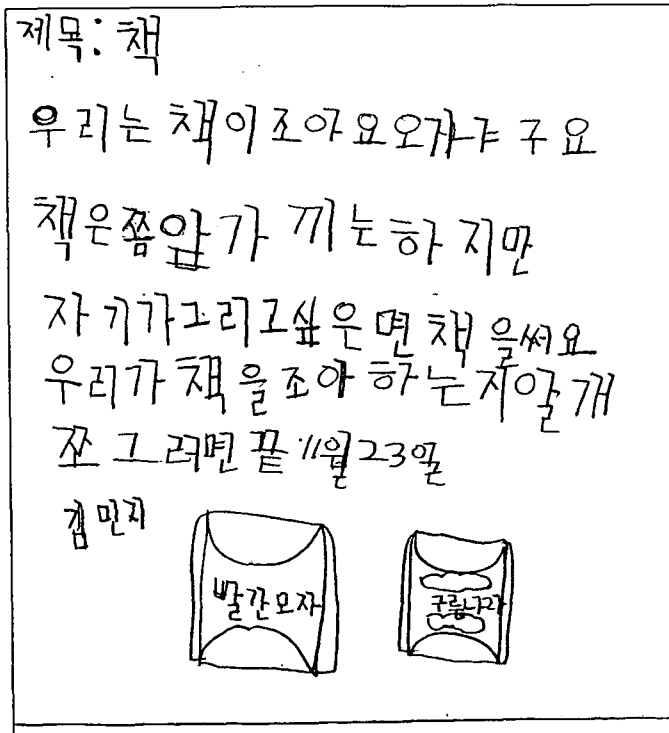 제목: 책
우리는 책이 조아요오가냐구요
책은쫌앞가 끼는하지만
자기가그리고싶은면 책을써요
우리가 책을조아하는지알개
쪼 그러면 끝 11월23일
김민지
빨간모자
구름나라